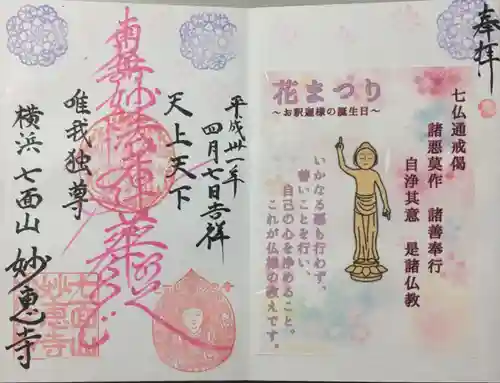 奉拝
七仏通戒偈
諸悪莫作 諸善奉行
自浄其意 是諸仏教
花まつり
～お釈迦様の誕生日～
いかなる悪も行わず、
善いことを行い、
自己の心を浄めること。
これが仏様の教えです。
平成卅一年
四月七日吉祥
天上天下
南無妙法蓮華経
唯我独尊
横浜 七面山 妙恵寺
七面山
妙恵寺